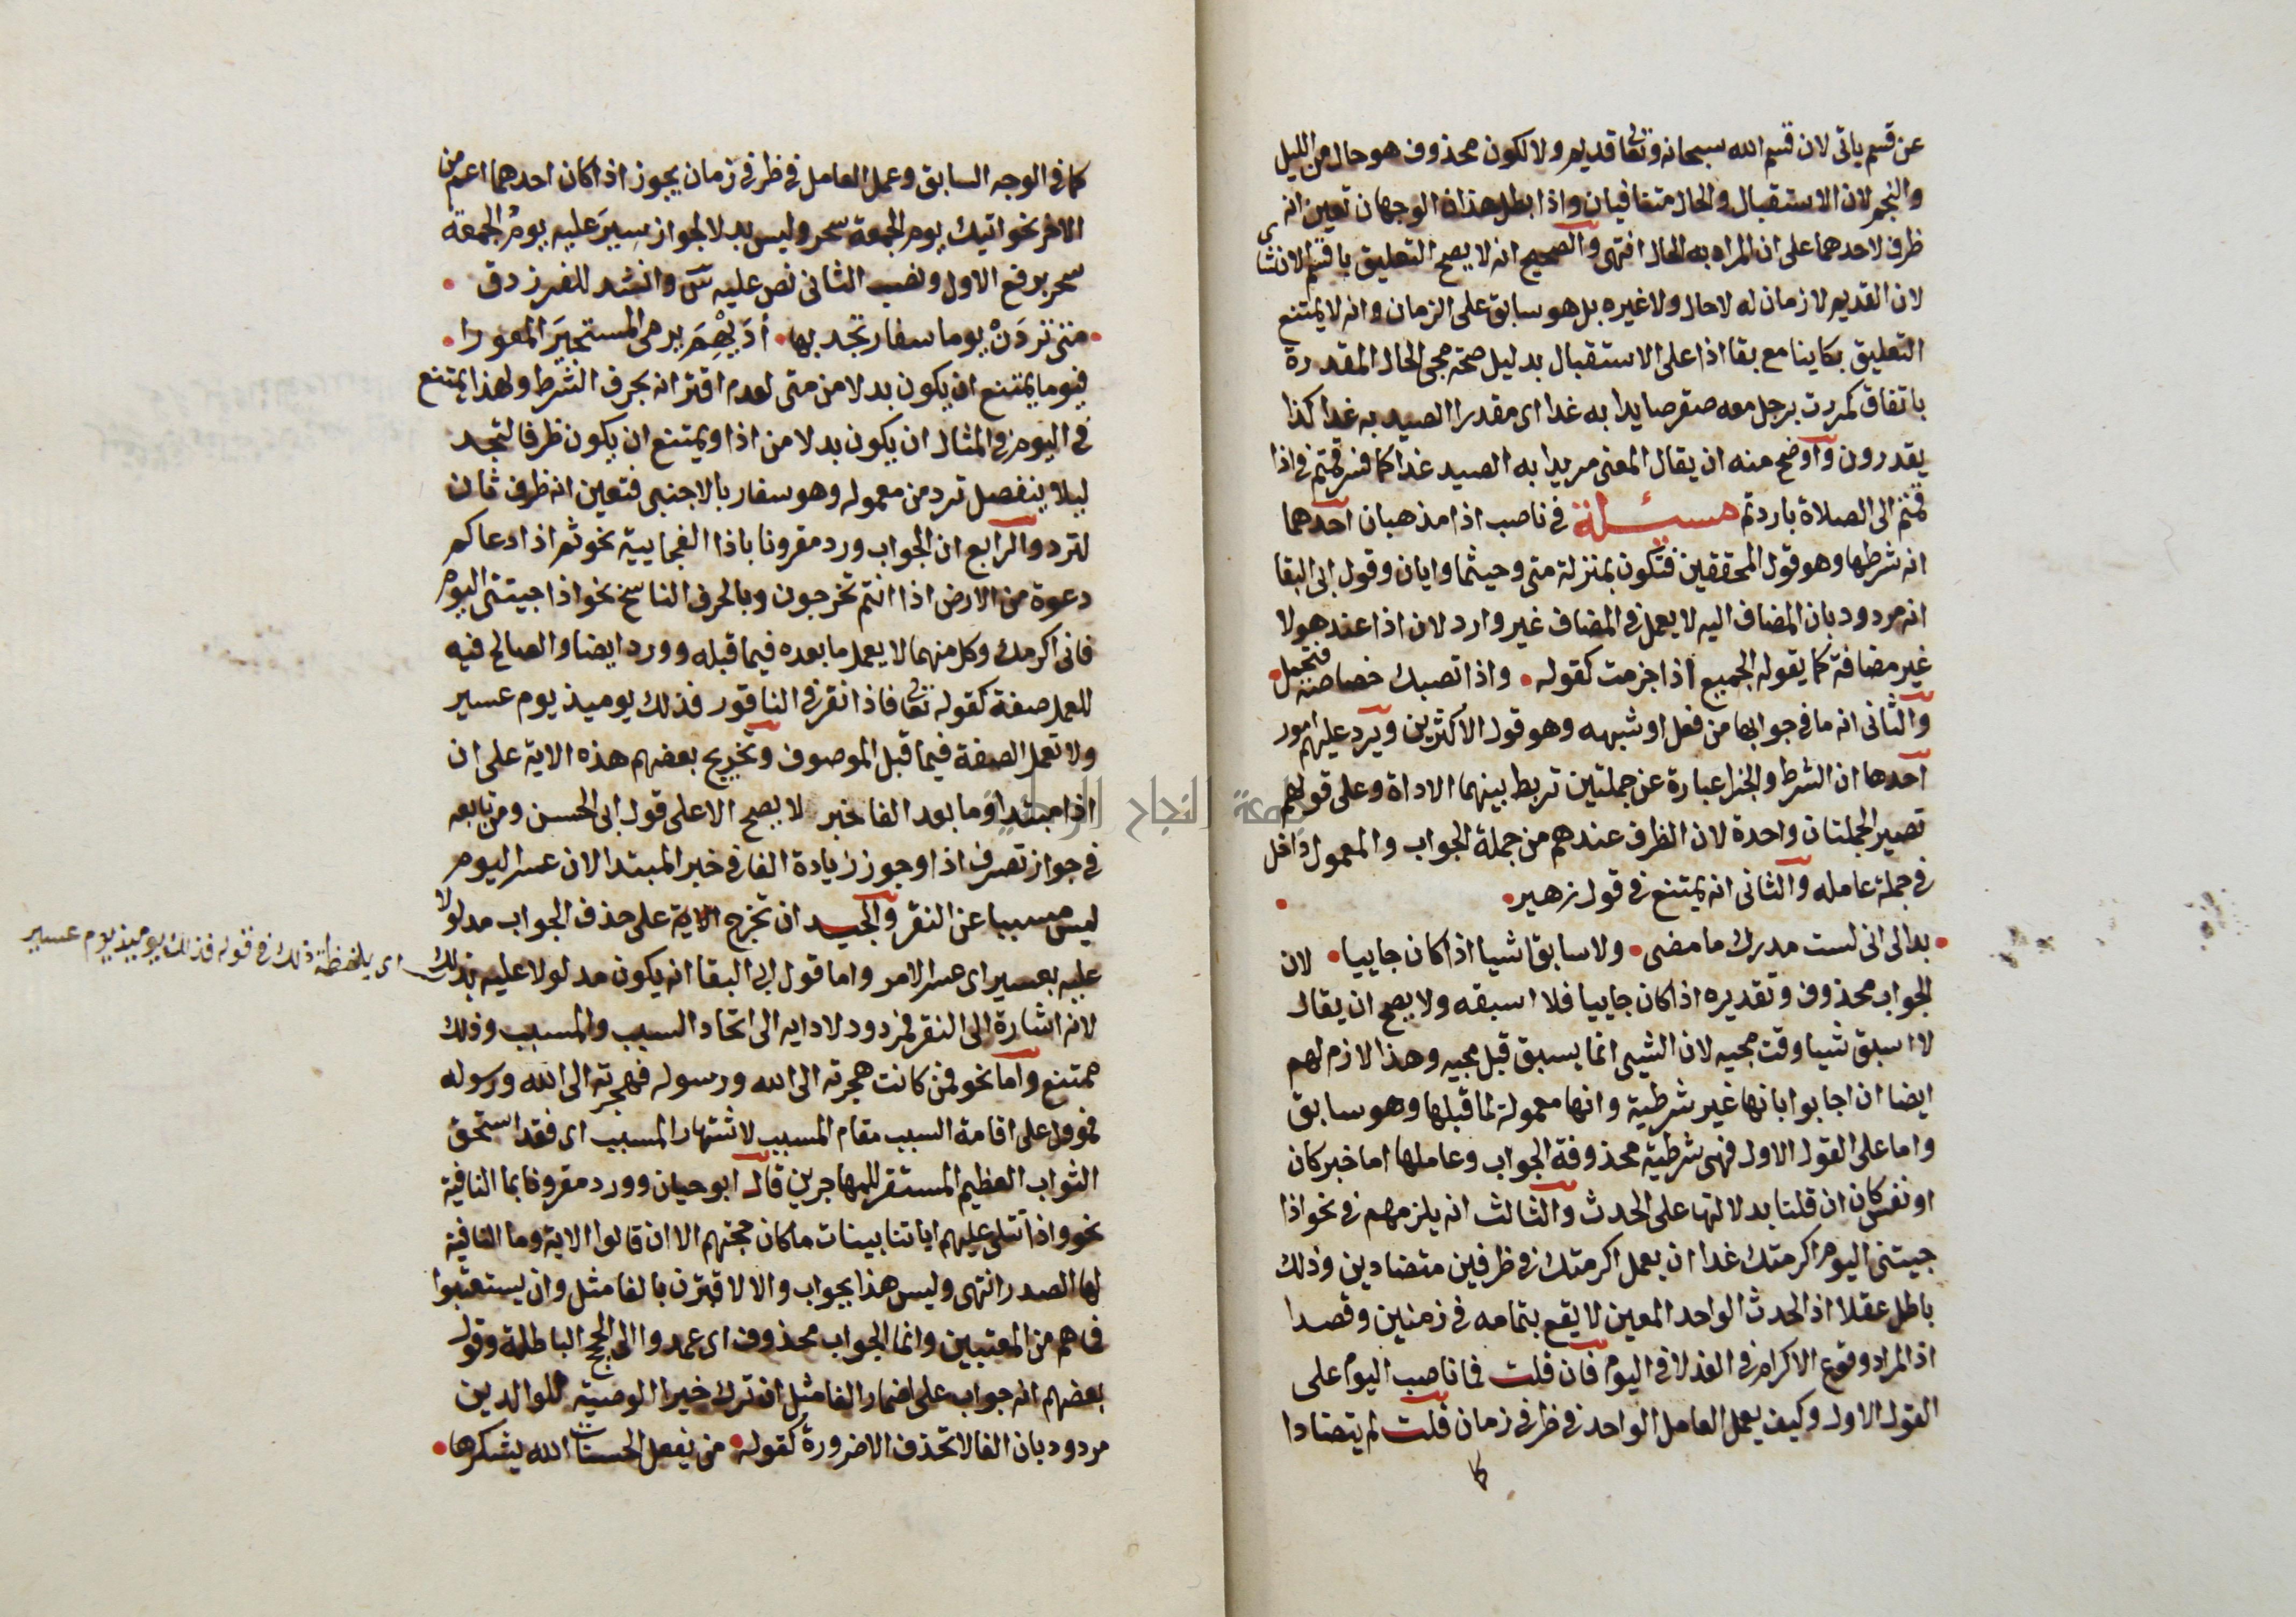 عن قسم ياتى لان قسم الله سبحانه وتعالى قديم ولا لكون محذوف هو حال من الليل
والنجم لان الاستقبال والحال متنافيان واذا بطل هذان الوجهان تعين انه
ظرف لاحدهما على ان المراد به الحال انتهى والصحيح انه لا يصح التعليق باقسم الانشاى
لان القديم لا زمان له لا حال ولا غيره بل هو سابق على الزمان وانه لا يمتنع
التعليق بكاينا مع بقا اذا على الاستقبال بدليل صحة مجى الحال المقدرة
باتفاق كمررت برجل معه صقر صايدا به غدا اى مقدرا الصيد به غدا كذا
يقدرون واوضح منه ان يقال المعنى مريدا به الصيد غدا كما فسر قمتم فى اذا
قمتم الى الصلاة باردتم مسئلة فى ناصب اذا مذهبان احدهما
انه شرطها وهو قول المحققين فتكون بمنزلة متى وحيثما وايان وقول ابى البقا
انه مردود بان المضاف اليه لا يعمل فى المضاف غير وارد لان اذا عند هولا
غير مضافة كما يقوله الجميع اذا جزمت كقوله واذا تصبك خصاصة فتجمل
والثانى انه ما فى جوابها من فعل او شبهه وهو قول الاكثرين ويرد عليهم امور
احدها ان الشرط والجزا عبارة عن جملتين تربط بينهما الاداة وعلى قولهم
تصير الجملتان واحدة لان الظرف عندهم من جملة الجواب والمعمول داخل
فى جملة عامله والثانى انه يمتنع فى قول زهير
بدا لى انى لست مدرك ما مضى ولا سابقا شيا اذا كان جاييا لان
الجواب محذوف وتقديره اذا كان جاييا فلا اسبقه ولا يصح ان يقال
لا اسبق شيا وقت مجيه لان الشيى انما يسبق قبل مجيه وهذا لازم لهم
ايضا ان اجابوا بانها غير شرطية وانها معمولة لما قبلها وهو سابق
واما على القول الاول فهى شرطية محذوفة الجواب وعاملها اما خبر كان
او نفس كان ان قلنا بدلالتها على الحدث والثالث انه يلزمهم فى نحو اذا
جيتنى اليوم اكرمتك غدا ان يعمل اكرمتك فى ظرفين متضادين وذلك
باطل عقلا اذ الحدث الواحد المعين لا يقع بتمامه فى زمنين وقصدا
اذ المراد وقوع الاكرام فى الغد لا فى اليوم فان قلت فما ناصب اليوم على
القول الاول وكيف يعمل العامل الواحد فى ظرفى زمان قلت لم يتضادا
كما
كما فى الوجه السابق وعمل العامل فى ظرفى زمان يجوز اذا كان احدهما اعم من
الاخر نحو اتيك يوم الجمعة سحر وليس بدلا لجواز سِيرَ عليه يومُ الجمعة
سحر برفع الاول ونصب الثانى نص عليه س وانشد للفرزدق
متى تردَنْ يوما سفار تجد بها أُدَيْهِمَ يرمى المستجيزَ المعورا
فيوما يمتنع ان يكون بدلا من متى لعدم اقترانه بحرف الشرط ولهذا يمتنع
فى اليوم فى المثال ان يكون بدلا من اذا ويمتنع ان يكون ظرفا لتجد
ليلا ينفصل ترد من معموله وهو سفار بالاجنبى فتعين انه ظرف ثان
لترد والرابع ان الجواب ورد مقرونا باذا الفجاييه نحو ثم اذا دعاكم
دعوة من الارض اذا انتم تخرجون وبالحرف الناسخ نحو اذا جيتنى اليوم
فانى اكرمك وكل منهما لا يعمل ما بعده فيما قبله وورد ايضا والصالح فيه
للعمل صفة كقوله تعالى فاذا نقر فى الناقور فذلك يوميذ يوم عسير
ولا تعمل الصفة فيما قبل الموصوف وتخريج بعضهم هذه الاية على ان
اذا مبتدا وما بعد الفا خبر لا يصح الا على قول ابى الحسن ومن تابعه
فى جواز تصرف اذا وجوز زيادة الفا فى خبر المبتدا لان عسر اليوم
ليس مسببا عن النقر والجيد ان تخرج الاية على حذف الجواب مدلولا
عليه بعسير اى عسر الامر واما قول ابى البقا انه يكون مدلولا عليه بذلك
اى بلفظة ذلك فى قوله فذلك يوميذ يوم عسير
لانه اشارة الى النقر فمردود لادايه الى اتحاد السبب والمسبب وذلك
ممتنع واما نحو فمن كانت هجرته الى الله ورسوله فهجرته الى الله ورسوله
فموول على اقامة السبب مقام المسبب لاشتهار المسبب اى فقد استحق
الثواب العظيم المستقر للمهاجرين قال ابو حيان وورد مقرونا بما النافية
نحو واذا تتلى عليهم اياتنا بينات ما كان حجتهم الا ان قالوا الاية وما النافية
لها الصدر انتهى وليس هذا بجواب والا لاقترن بالفا مثل وان يستعتبوا
فما هم من المعتبين وانما الجواب محذوف اى عمدوا الى الحجج الباطلة وقول
بعضهم انه جواب على اضمار الفا مثل ان ترك خيرا الوصية للوالدين
مردود بان الفا لا تحذف الا ضرورة كقوله من يفعل الحسنات الله يشكرها
جامعة النجاح الوطنية